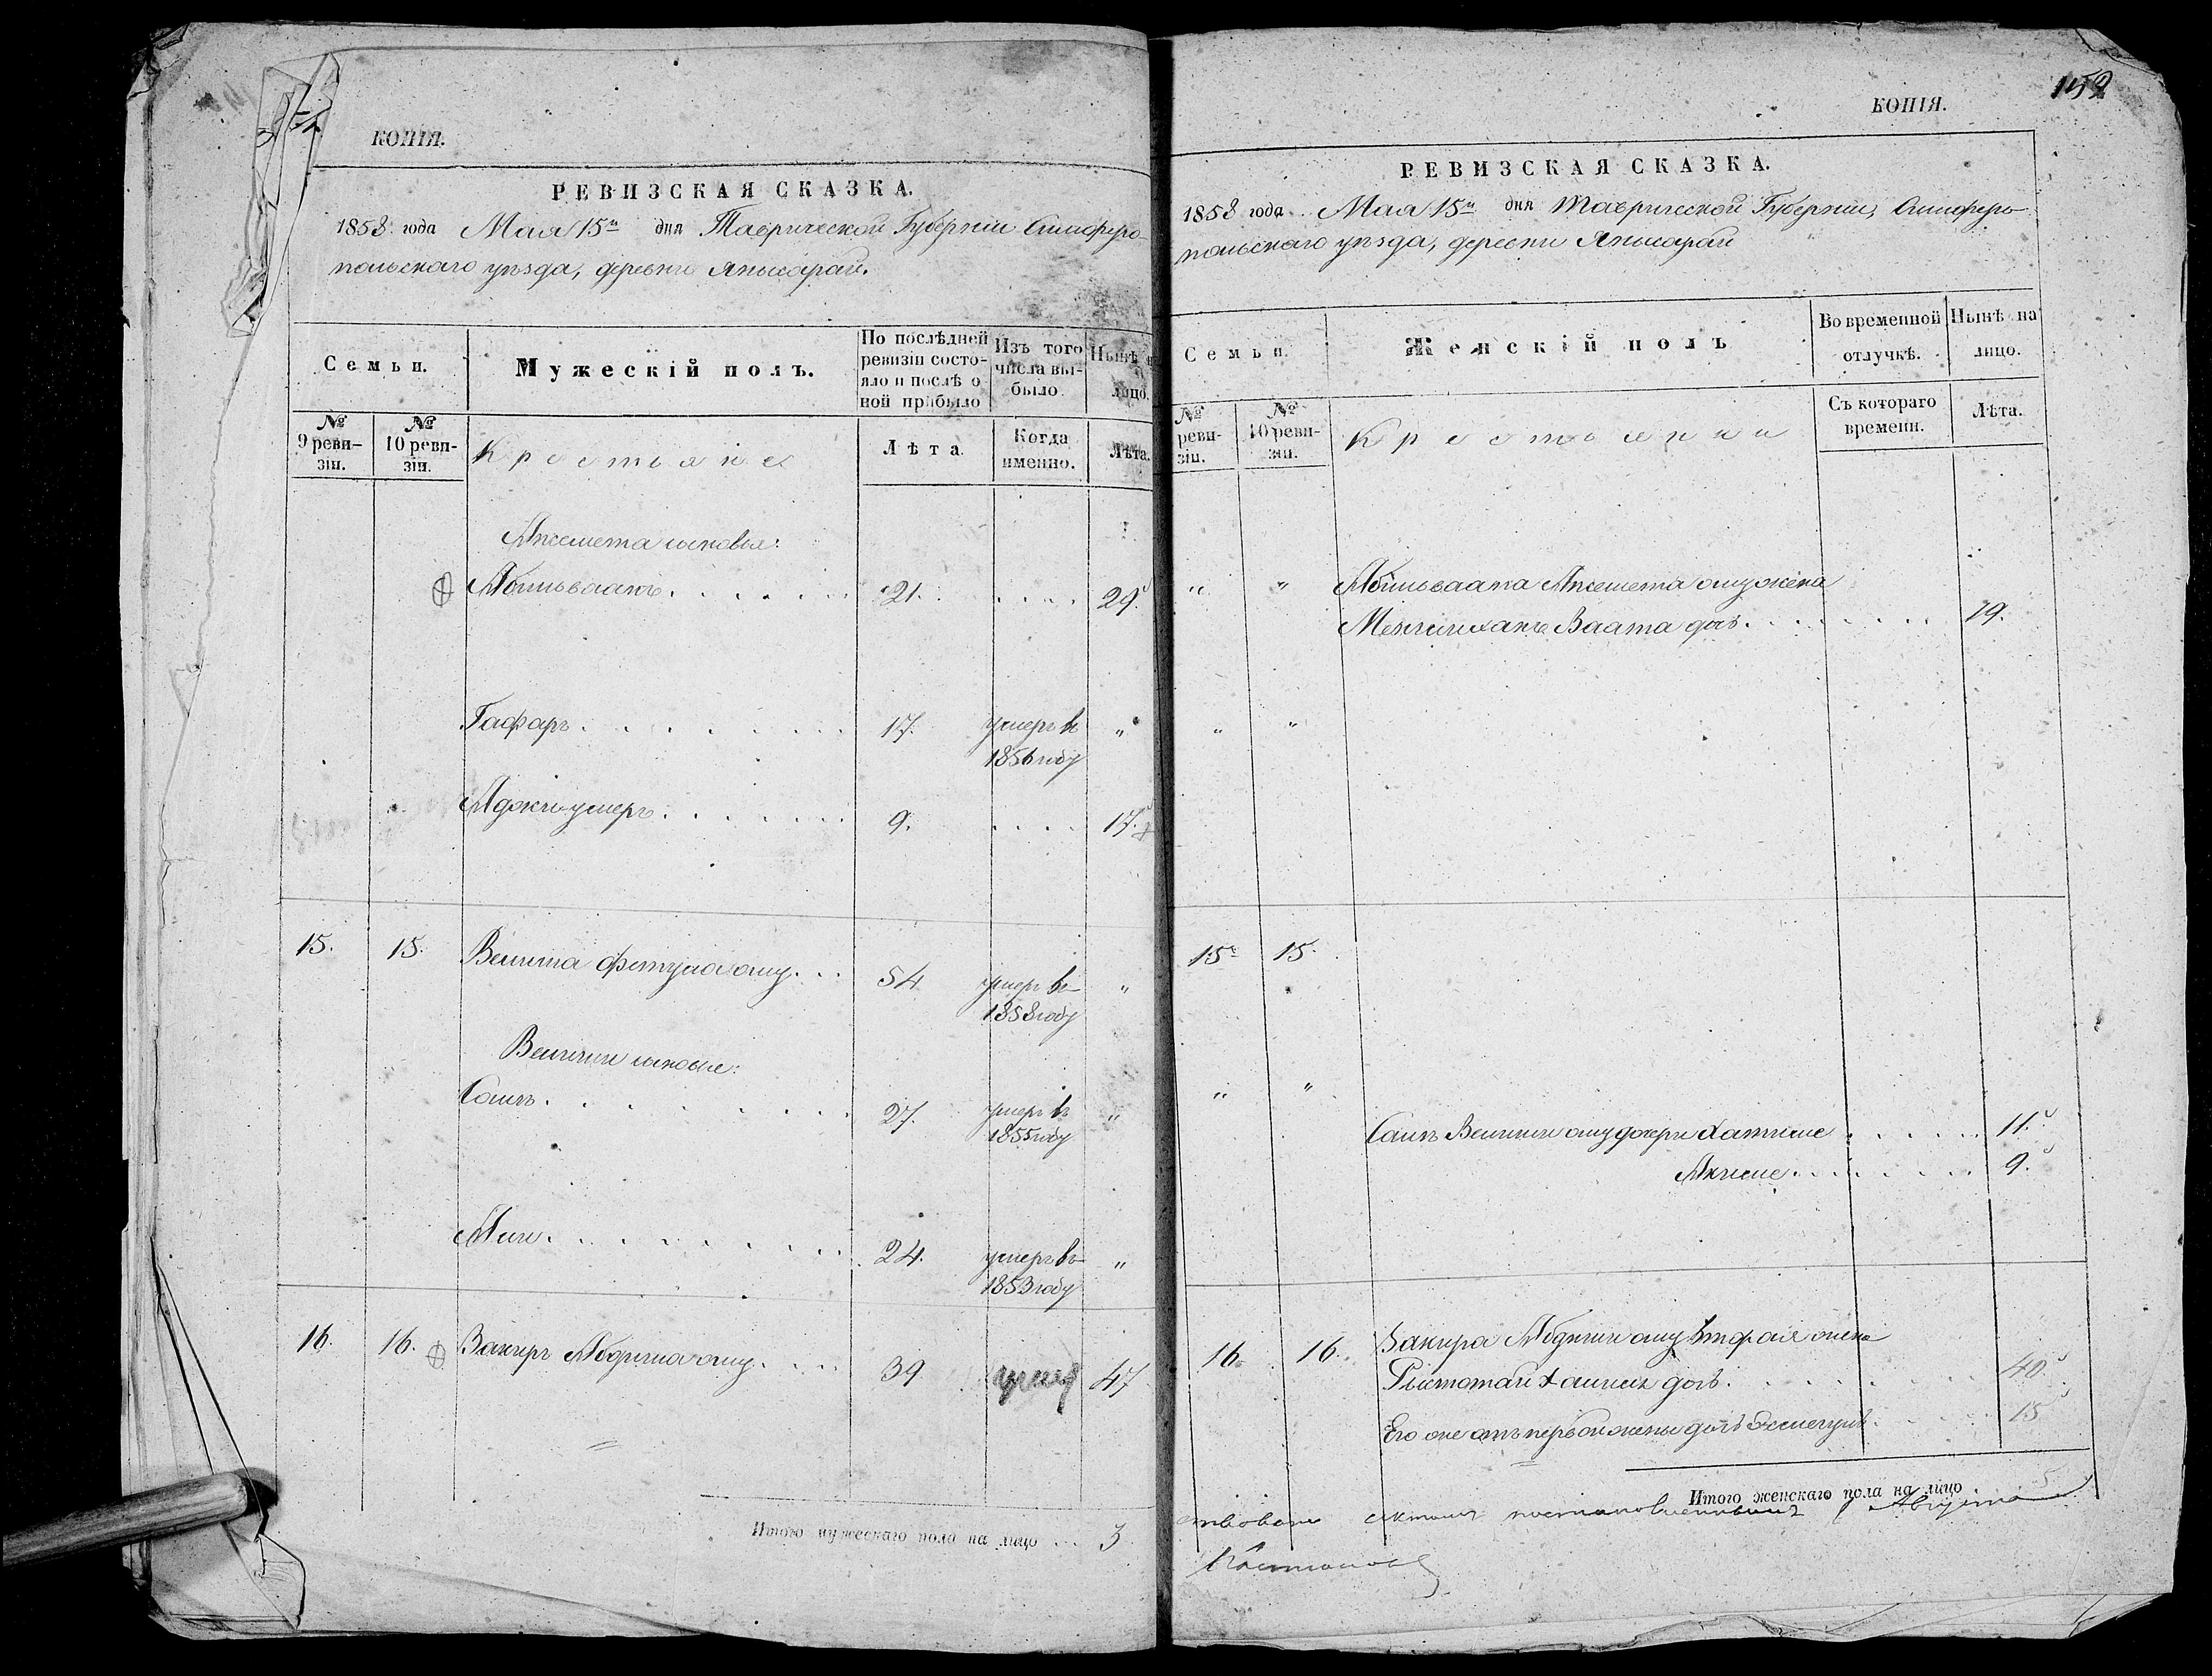 КОПІЯ.
РЕВИЗСКАЯ СКАЗКА.
1858 года Мая 15го дня Таврической Губерніи Симферо-
польскаго уѣзда, деревни Янысарай.
Семьи.
Мужескій полъ.
По послѣдней
ревизіи состо-
яло и послѣ о
ной прибыло
Изъ того
числа вы-
было.
Нынѣ на
лицо.
№
9 реви-
зіи.
№
10 реви-
зіи.
Крестьяне
Лѣта.
Когда
именно.
Лѣта.
сыновья:
21. . . . . 29.
Гафаръ. 17. умеръ въ "
1856 году
Аджи-умеръ. 9. . . . . 17.
15. 15. Велиша оглу. . . 54 умеръ въ "
1858 году
Велиши сыновья:
Саитъ. 27. умеръ въ "
1855 году
Али. 24. умеръ въ "
1853 году
16. 16. Закиръ оглу. 39 умер 47
Итого мужескаго пола на лицо . . . 3
152
КОПІЯ.
РЕВИЗСКАЯ СКАЗКА.
1858 года Мая 15го дня Таврической Губерніи, Симферо-
польскаго уѣзда, деревни Янысарай
Семьи.
Женскій полъ
Во временной
отлучкѣ.
Нынѣ на
лицо.
№
реви-
зіи.
№
10 реви-
зіи.
Крестьянки
Съ котораго
времени.
Лѣта.
" " оглу жена
Ваата дочь. 19.
" "
15. 15.
" "
Саита Велиши оглу дочери Хатише 11.
9.
16. 16. Закира оглу вторая жена
дочь. 40.
Его же отъ первой жены дочь 15
Итого женскаго пола на лицо 5.
Августа